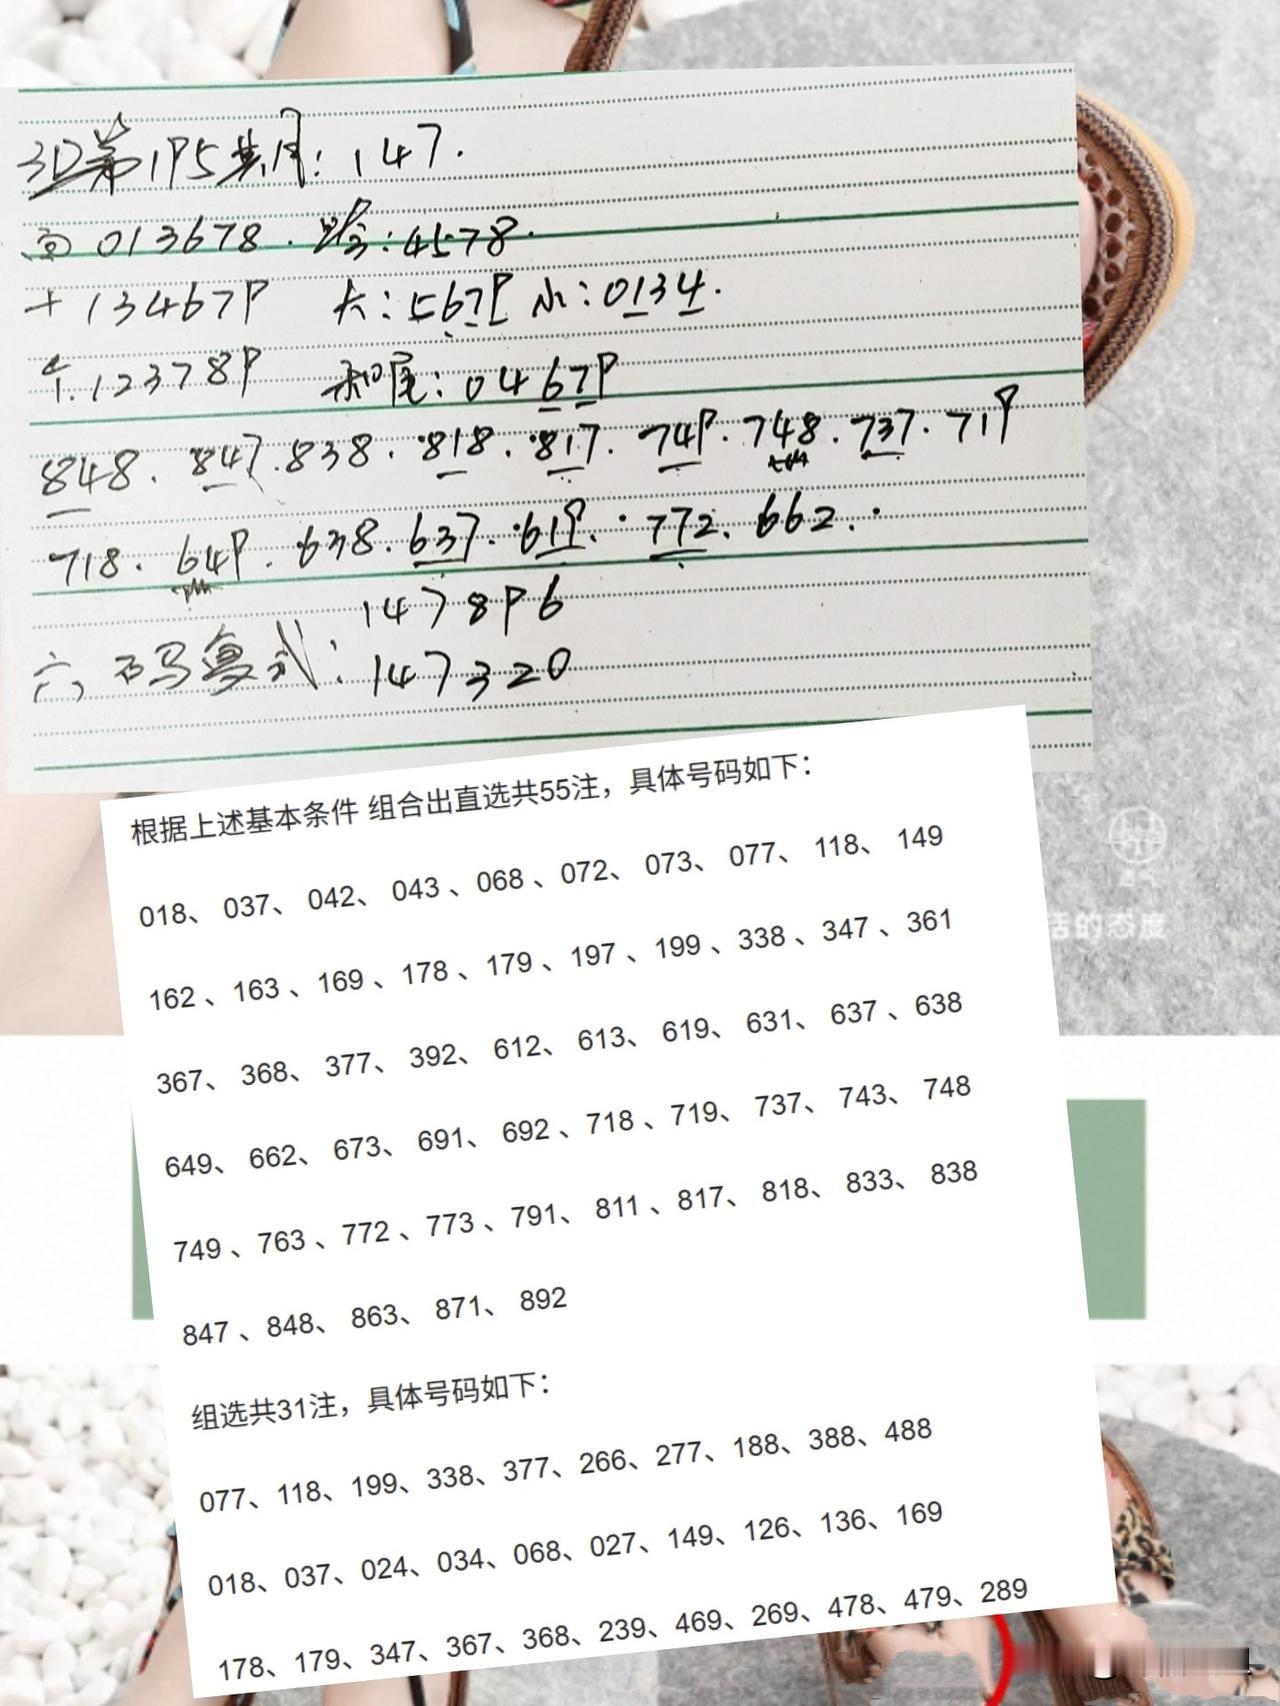 3D第195期:147.
百013678. 跨:4578.
十134679 大:5679 小:0134.
个.123789 和尾:04679
848. 847.838. 818. 817. 749. 748. 737. 719
718. 649. 638. 637. 619. 772. 662.
147896
六码复式:147320
根据上述基本条件 组合出直选共55注，具体号码如下：
018、 037、 042、 043 、068 、072、 073、 077、 118、 149
162 、163 、169 、178 、179 、197 、199 、338 、347 、361
367、 368、 377、 392、 612、 613、 619、 631、 637 、638
649、 662、 673、 691、 692 、718 、719、 737、 743、 748
749 、763 、772 、773 、791、 811 、817、 818、 833、 838
847 、848、 863、 871、 892
组选共31注，具体号码如下：
077、118、199、338、377、266、277、188、388、488
018、037、024、034、068、027、149、126、136、169
178、179、347、367、368、239、469、269、478、479、289
活的态度